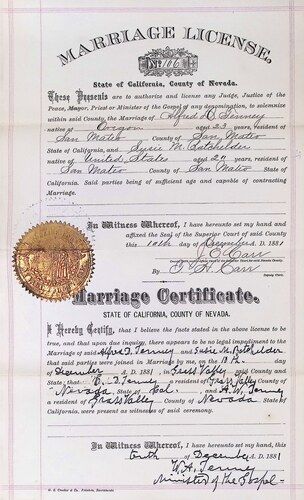 MARRIAGE LICENSE,
No 106
State of California, County of Nevada.
These Presents are to authorize and license any Judge, Justice of the
Peace, Mayor, Priest or Minister of the Gospel of any denomination, to solemnize
within said County, the Marriage of Alfred D. Tenney
native of Oregon aged 23 years, resident of
San Mateo County of San Mateo
State of California, and Susie M. Batchelder
native of United States aged 27 years, resident of
San Mateo County of San Mateo
State of California. Said parties being of sufficient age and capable of contracting
Marriage.
In Witness Whereof, I have hereunto set my hand and
affixed the Seal of the Superior Court of said County
this 10th day of December A. D. 1881
J. E. Carr
By
Carr
Deputy Clerk
Marriage Certificate.
STATE OF CALIFORNIA, COUNTY OF NEVADA.
I Hereby Certify, that I believe the facts stated in the above license to be
true, and that upon due inquiry, there appears to be no legal impediment to the
Marriage of said Alfred D. Tenney and Susie M. Batchelder
that said parties were joined in Marriage by me, on the day
of December A. D. 1881, in Grass Valley County and
State; that Tenney a resident of Grass Valley
County of Nevada, State of Cal. and Tenney
a resident of Grass Valley County of Nevada State of Cal.
were present as witnesses of said ceremony.
In Witness Whereof, I have hereunto set my hand, this
tenth day of December A. D. 1881
W. A. Tenney
Minister of the Gospel